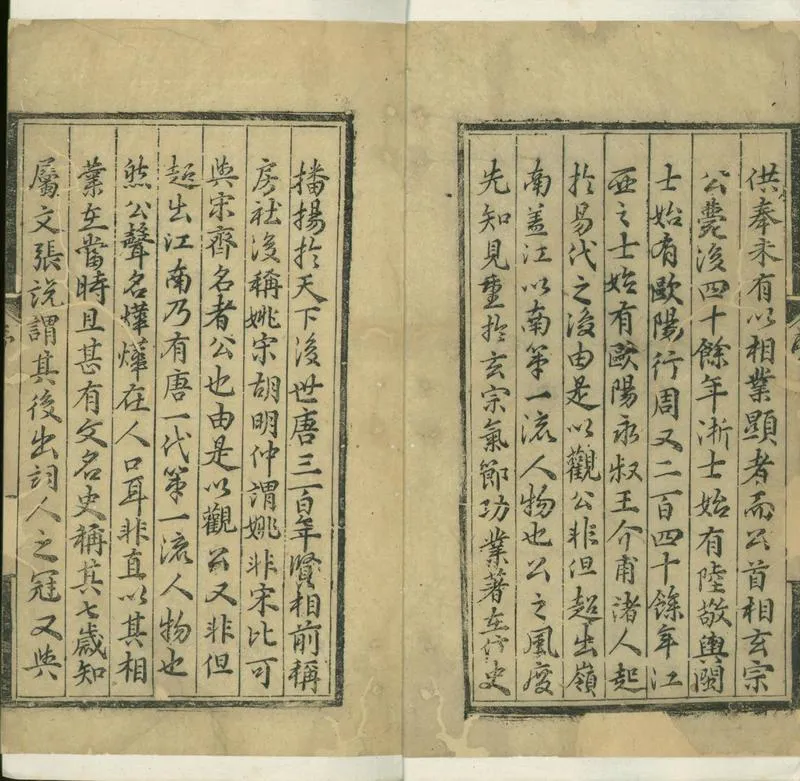 供奉未有以相業顯者而公首相玄宗
公薨後四十餘年浙士始有陸敬輿閩
士始有歐陽行周又二百四十餘年江
西之士始有歐陽永叔王介甫諸人起
扵易代之後由是以觀公非但超出嶺
南盖江以南第一流人物也公之風度
先知見重扵玄宗氣節功業著在信史
播揚扵天下後世唐三百年賢相前稱
房杜後稱姚宋胡明仲謂姚非宋比可
與宋齊名者公也由是以觀公又非但
超出江南乃有唐一代第一流人物也
然公聲名燁燁在人口耳非直以其相
業在當時且甚有文名史稱其七歲知
屬文張說謂其後出詞人之冠又與